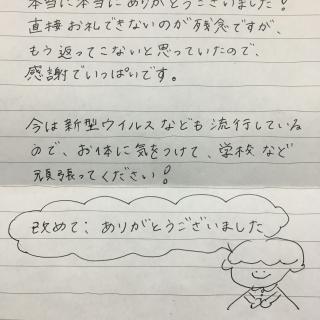 本当に本当にありがとうございました!
直接お礼できないのが残念ですが、
もう返ってこないと思っていたので、
感謝でいっぱいです。
今は新型ウイルスなども流行している
ので、お体に気をつけて、学校など
頑張ってください!
改めて、ありがとうございました